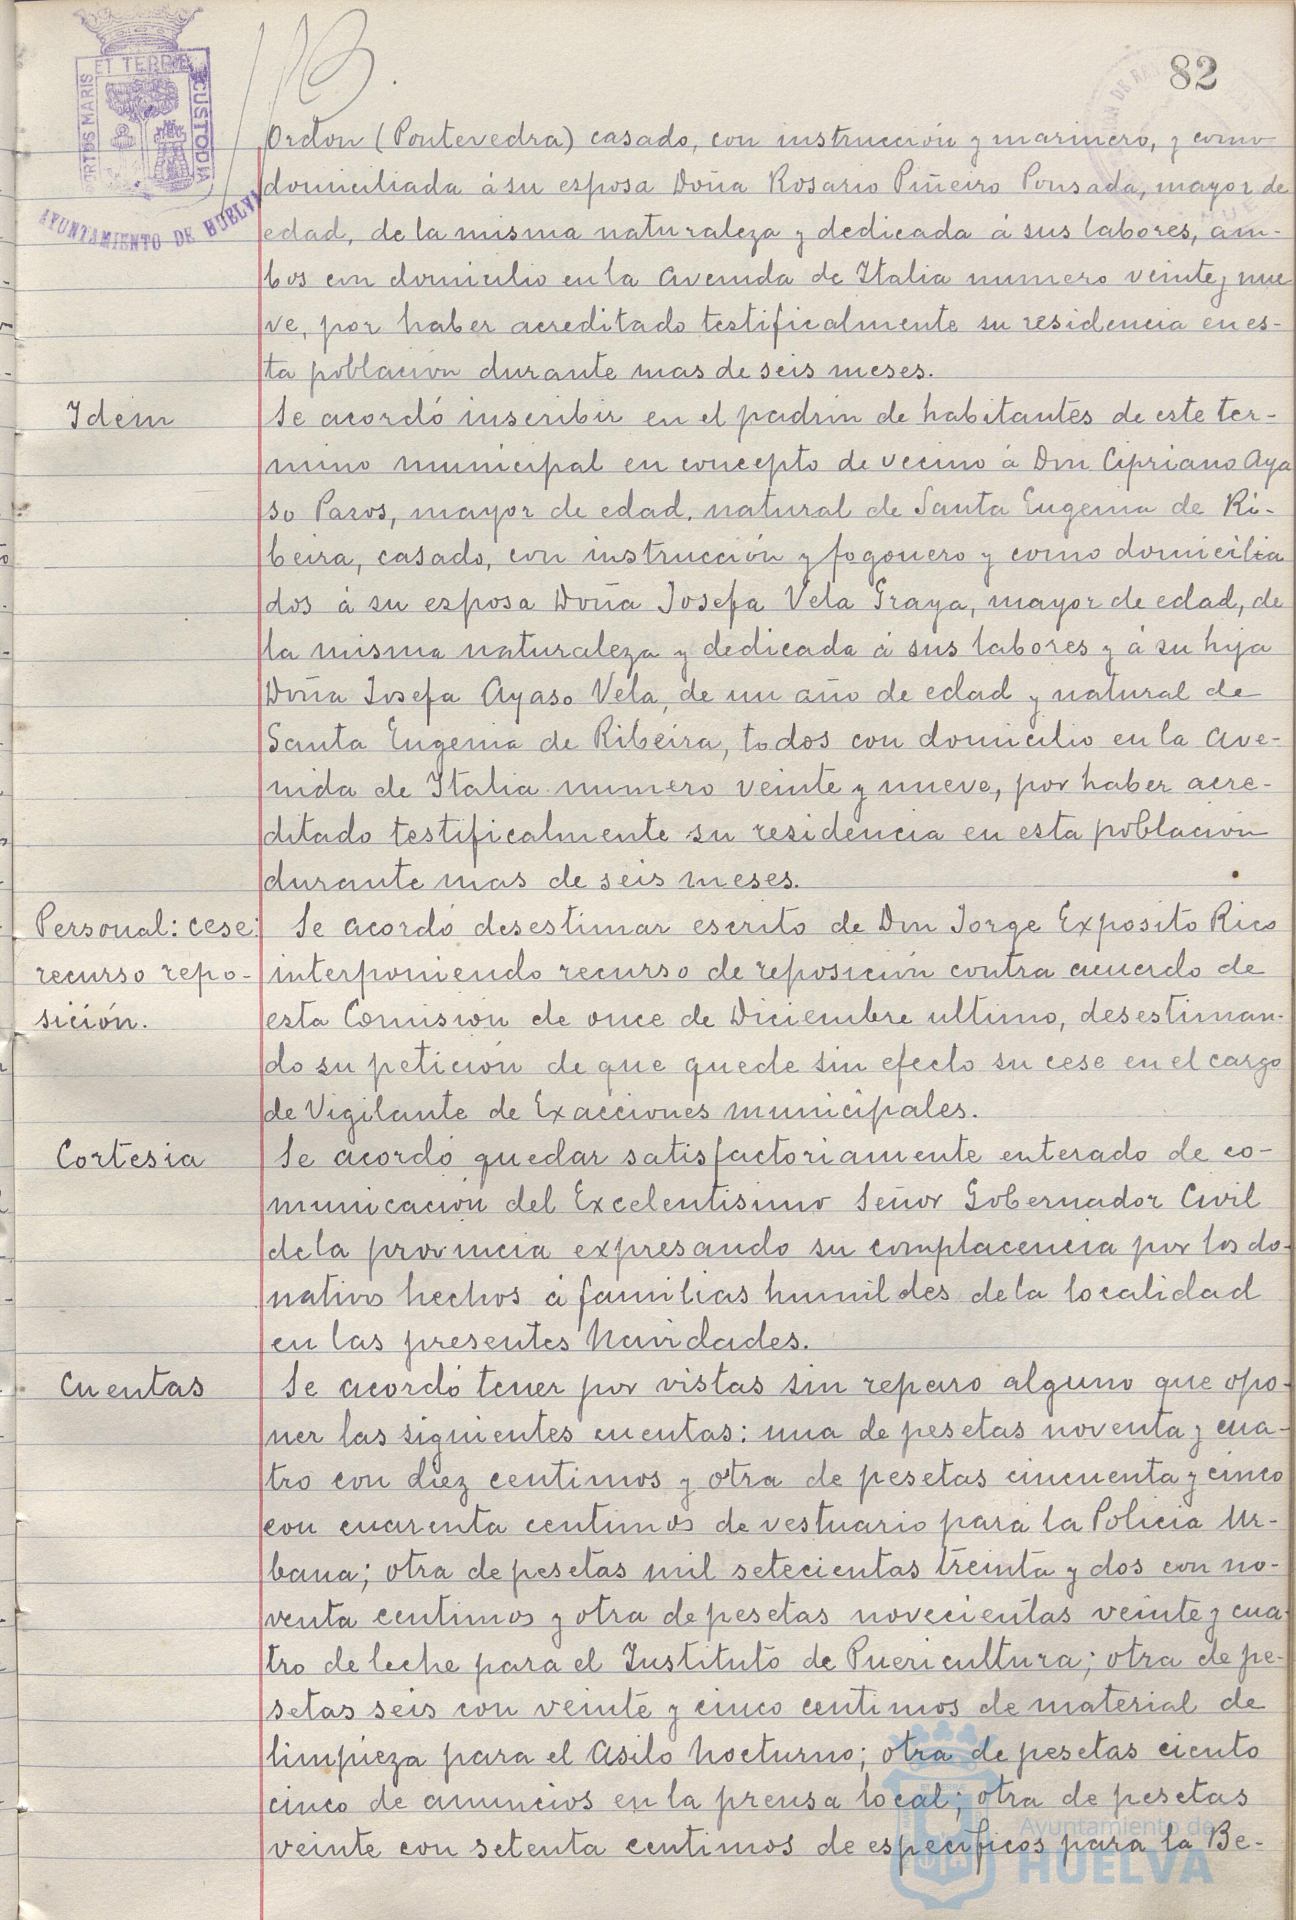 82
PORTUS MARIS ET TERRE CUSTODIA
AYUNTAMIENTO DE HUELVA
Ordon (Pontevedra) casado, con instrucción y marinero, y como
domiciliada á su esposa Doña Rosario Piñeiro Pousada, mayor de
edad, de la misma naturaleza y dedicada á sus labores, am-
bos con domicilio en la Avenida de Italia numero veinte y nue
ve, por haber acreditado testificalmente su residencia en es-
ta poblacion durante mas de seis meses.
Idem
Se acordó inscribir en el padrón de habitantes de este ter-
mino municipal en concepto de vecino á Don Cipriano Aya
so Pazos, mayor de edad, natural de Santa Eugenia de Ri-
beira, casado, con instrucción y fogonero y como domicilia
dos á su esposa Doña Josefa Vela Graya, mayor de edad, de
la misma naturaleza y dedicada á sus labores y á su hija
Doña Josefa Ayaso Vela, de un año de edad y natural de
Santa Eugenia de Ribeira, todos con domicilio en la Ave-
nida de Italia numero veinte y nueve, por haber acre-
ditado testificalmente su residencia en esta poblacion
durante mas de seis meses.
Personal: cese:
recurso repo-
sición.
Se acordó desestimar escrito de Don Jorge Exposito Rico
interponiendo recurso de reposición contra acuerdo de
esta Comisión de once de Diciembre ultimo, desestiman-
do su petición de que quede sin efecto su cese en el cargo
de Vigilante de Exacciones municipales.
Cortesia
Se acordó quedar satisfactoriamente enterado de co-
municación del Excelentisimo Señor Gobernador Civil
de la provincia expresando su complacencia por los do-
nativos hechos á familias humildes de la localidad
en las presentes Navidades.
Cuentas
Se acordó tener por vistas sin reparo alguno que opo-
ner las siguientes cuentas: una de pesetas noventa y cua-
tro con diez centimos y otra de pesetas cincuenta y cinco
con cuarenta centimos de vestuario para la Policia Ur-
bana; otra de pesetas mil setecientas treinta y dos con no-
venta centimos y otra de pesetas novecientas veinte y cua-
tro de leche para el Instituto de Puericultura; otra de pe-
setas seis con veinte y cinco centimos de material de
limpieza para el Asilo Nocturno; otra de pesetas ciento
cinco de anuncios en la prensa local; otra de pesetas
veinte con setenta centimos de específicos para la Be-
Ayuntamiento de
HUELVA